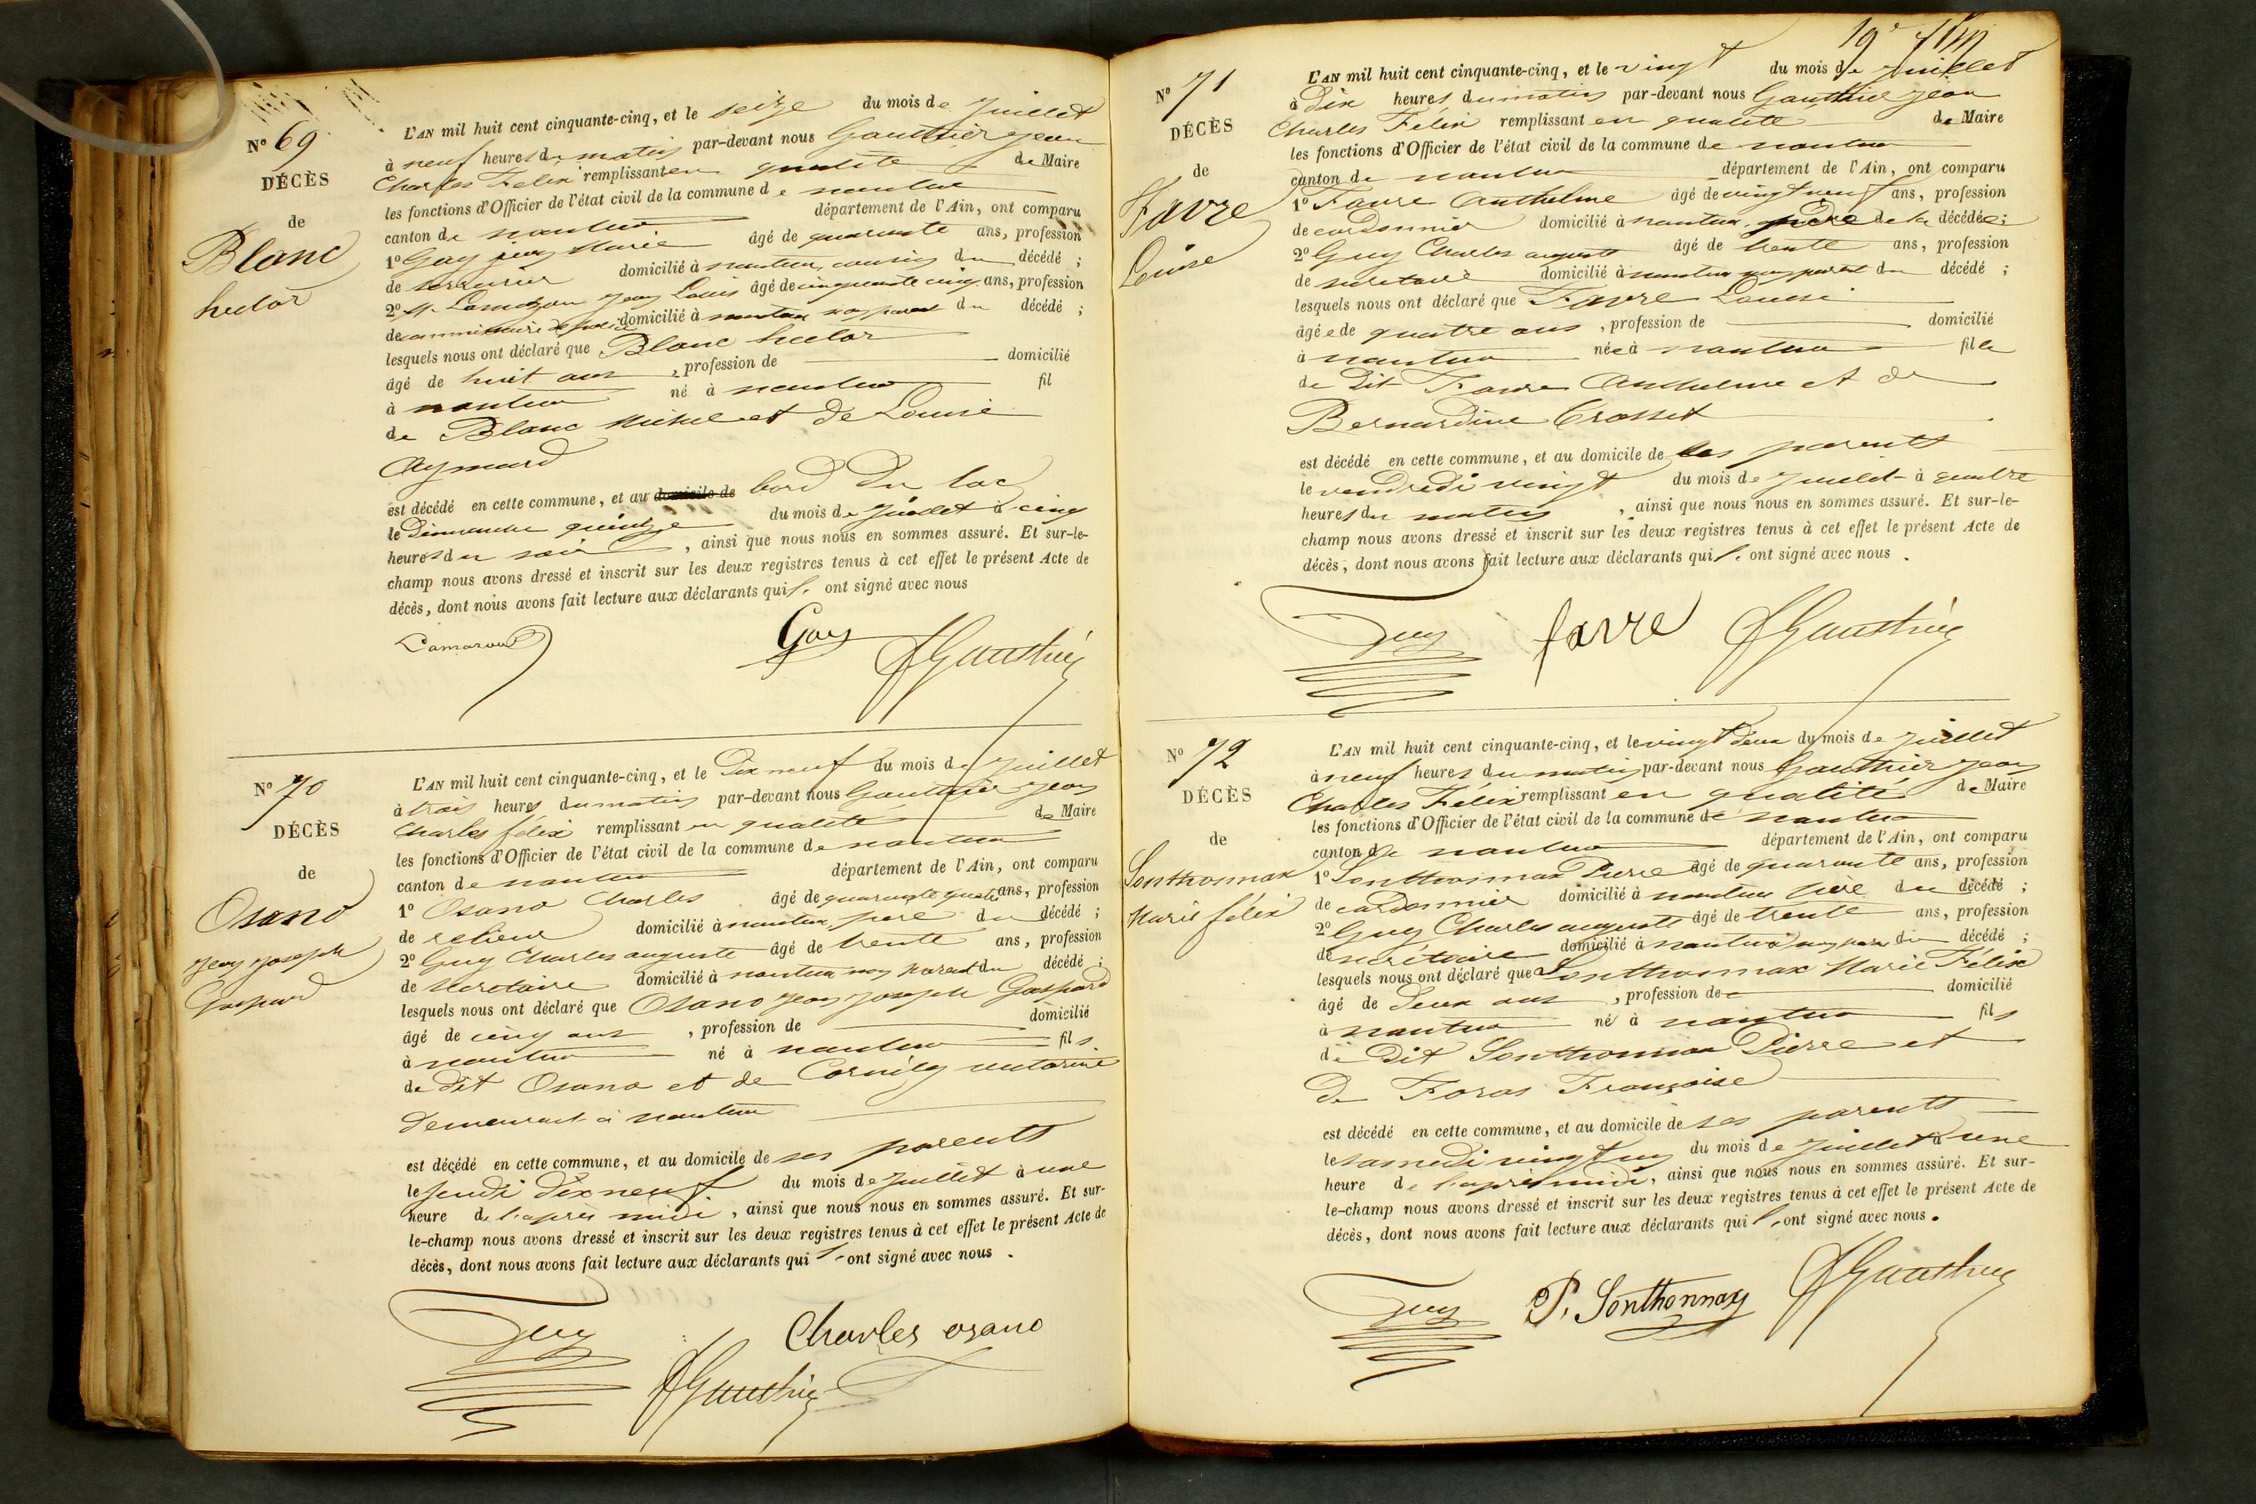 Nº 69
DÉCÈS
de
Blanc
hector
L'AN mil huit cent cinquante-cinq, et le seize du mois de juillet
à neuf heures du matin par-devant nous Gauthier jean
Charles Félix remplissant en qualité de Maire
les fonctions d'Officier de l'état civil de la commune de nantua
canton de nantua département de l'Ain, ont comparu
1º Gay jean Marie âgé de quarante ans, profession
de serrurier domicilié à nantua, cousin du décédé ;
2º jean Louis âgé de cinquante cinq ans, profession
de commissaire de police domicilié à nantua non parent du décédé ;
lesquels nous ont déclaré que Blanc hector
âgé de huit ans, profession de domicilié
à nantua né à nantua fil
de Blanc Michel et de Louise
Aymard
est décédé en cette commune, et au domicile de bord du lac
le Dimanche quinze du mois de juillet à cinq
heures du soir, ainsi que nous nous en sommes assuré. Et sur-le-
champ nous avons dressé et inscrit sur les deux registres tenus à cet effet le présent Acte de
décès, dont nous avons fait lecture aux déclarants qui l' ont signé avec nous
Gay
Gauthier
Nº 70
DÉCÈS
de
Osano
jean joseph
Gaspard
L'AN mil huit cent cinquante-cinq, et le Dix neuf du mois de juillet
à trois heures du matin par-devant nous Gauthier jean
Charles félix remplissant en qualité de Maire
les fonctions d'Officier de l'état civil de la commune de nantua
canton de nantua département de l'Ain, ont comparu
1º Osano Charles âgé de quarante quatre ans, profession
de relieur domicilié à nantua, père du décédé ;
2º Guy Charles auguste âgé de trente ans, profession
de secrétaire domicilié à nantua non parent du décédé ;
lesquels nous ont déclaré que Osano jean joseph Gaspard
âgé de cinq ans, profession de domicilié
à nantua né à nantua fils
de dit Osano et de
demeurant à nantua
est décédé en cette commune, et au domicile de ses parents
le jeudi dix neuf du mois de juillet à une
heure de l'après midi, ainsi que nous nous en sommes assuré. Et sur-
le-champ nous avons dressé et inscrit sur les deux registres tenus à cet effet le présent Acte de
décès, dont nous avons fait lecture aux déclarants qui l' ont signé avec nous.
Guy
Charles osano
Gauthier
Nº 71
DÉCÈS
de
Favre
Louise
L'AN mil huit cent cinquante-cinq, et le vingt du mois de juillet
à Dix heures du matin par-devant nous Gauthier jean
Charles Félix remplissant en qualité de Maire
les fonctions d'Officier de l'état civil de la commune de nantua
canton de nantua département de l'Ain, ont comparu
1º Favre Anthelme âgé de vingt neuf ans, profession
de cordonnier domicilié à nantua père de la décédée ;
2º Guy Charles auguste âgé de trente ans, profession
de secrétaire domicilié à nantua non parent du décédé ;
lesquels nous ont déclaré que Favre Louise
âgée de quatre ans, profession de domicilié
à nantua née à nantua fille
de dit Favre Anthelme et de
Bernardine Crosset
est décédé en cette commune, et au domicile de ses parents
le vendredi vingt du mois de juillet à quatre
heures du matin, ainsi que nous nous en sommes assuré. Et sur-le-
champ nous avons dressé et inscrit sur les deux registres tenus à cet effet le présent Acte de
décès, dont nous avons fait lecture aux déclarants qui l' ont signé avec nous.
Guy
favre
Gauthier
Nº 72
DÉCÈS
de
Sonthonnax
Marie félix
L'AN mil huit cent cinquante-cinq, et le vingt deux du mois de juillet
à neuf heures du matin par-devant nous Gauthier jean
Charles Félix remplissant en qualité de Maire
les fonctions d'Officier de l'état civil de la commune de nantua
canton de nantua département de l'Ain, ont comparu
1º Sonthonnax Pierre âgé de quarante ans, profession
de cordonnier domicilié à nantua père du décédé ;
2º Guy Charles auguste âgé de trente ans, profession
de secrétaire domicilié à nantua non parent du décédé ;
lesquels nous ont déclaré que Sonthonnax Marie Félix
âgé de Deux ans, profession de domicilié
à nantua né à nantua fils
de Dit Sonthonnax Pierre et
De Foras Françoise
est décédé en cette commune, et au domicile de ses parents
le samedi vingt un du mois de juillet à une
heure de l'après midi, ainsi que nous nous en sommes assuré. Et sur-
le-champ nous avons dressé et inscrit sur les deux registres tenus à cet effet le présent Acte de
décès, dont nous avons fait lecture aux déclarants qui l' ont signé avec nous.
Guy
P. Sonthonnax
Gauthier